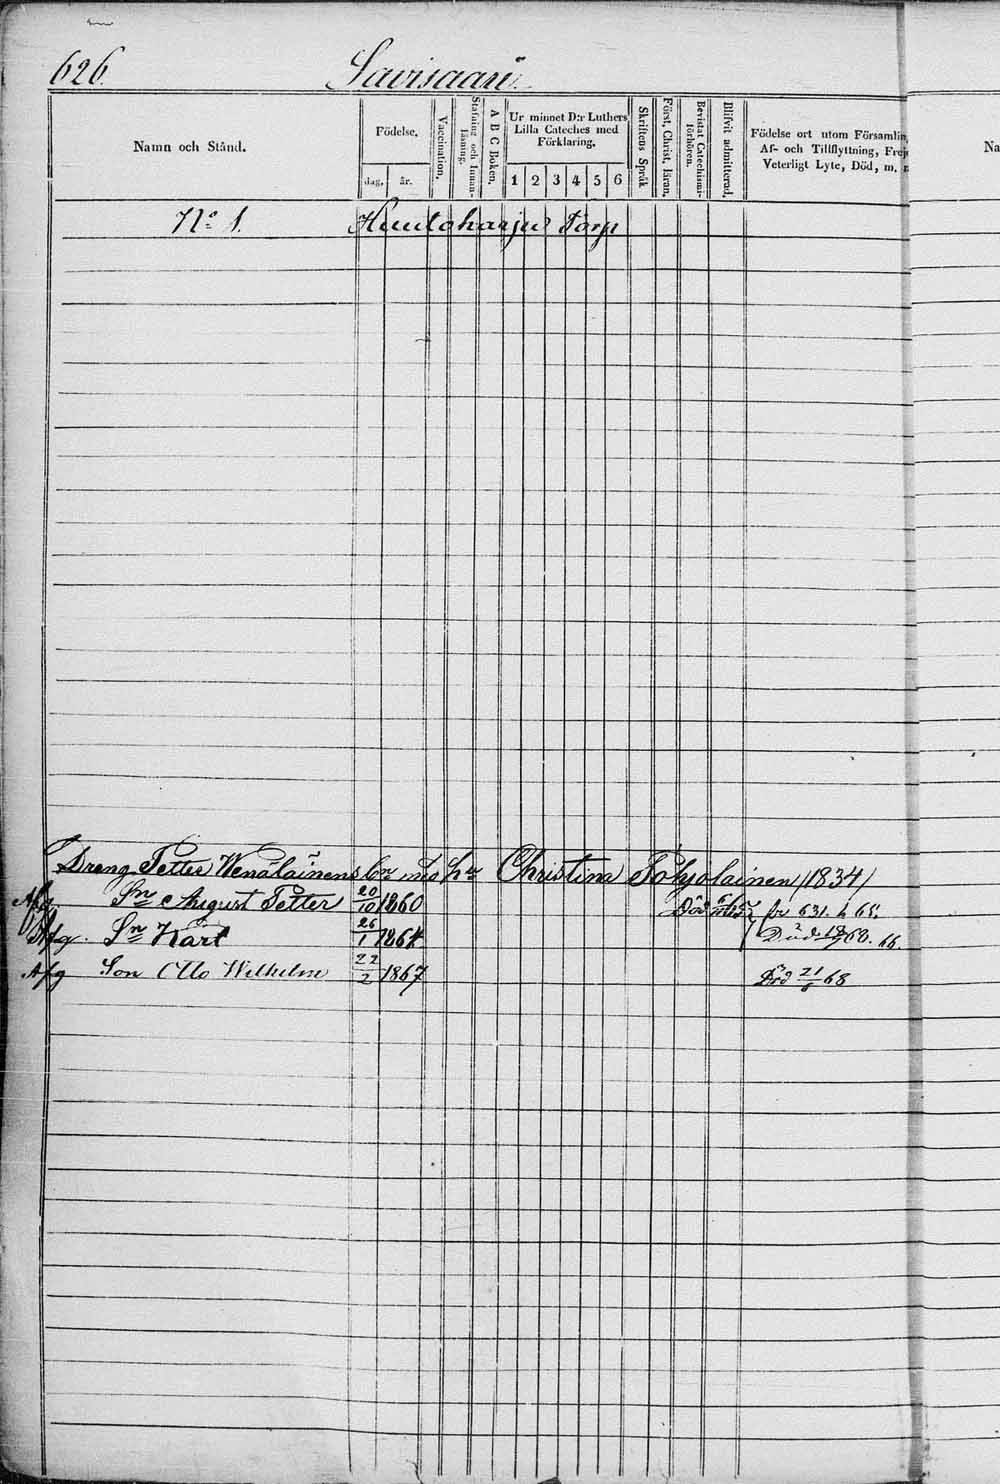 626. Savisaari
Namn och Stånd.
Födelse.
dag. år.
Vaccination.
Stafning och Innan-läsning.
A B C Boken.
Ur minnet D:r Luthers
Lilla Cateches med
Förklaring.
1 2 3 4 5 6
Skriftens Språk
Först. Christ. läran.
Bevistat Catechismi-förhören.
Blifvit admitterad.
Födelse ort utom Församlin
Af- och Tillflyttning, Frej
Veterligt Lyte, Död, m. m
Na
N:o 1. Huutoharju Torp
Dreng Petter Wenäläinens br med hu Christina Pohjolainen /1834/
Afg. Sn August Petter 20/10 1860 Död fr 631. h 65.
Afg. Sn Karl 26/1 1864 Död 60. 66.
Afg Son Otto Wilhelm 22/2 1867 Död 21/6 68